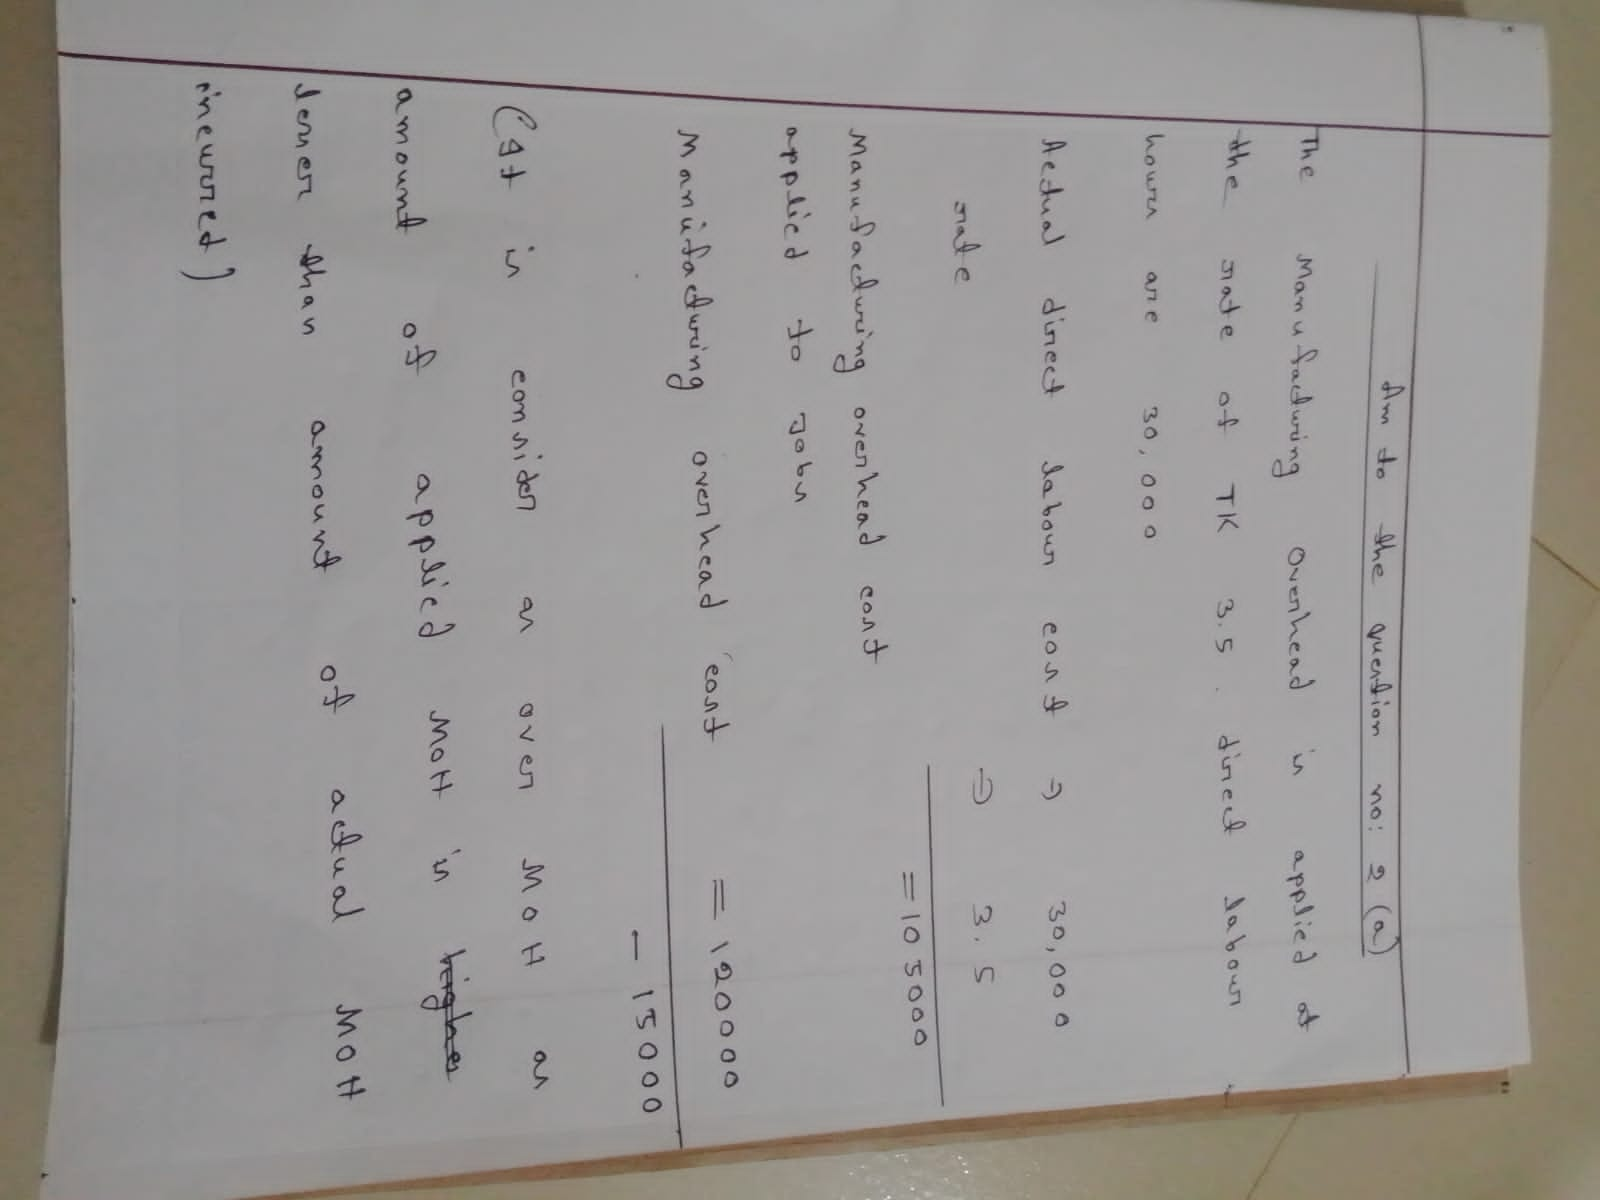 Ans to the question no: 2 (a)
The Manufacturing Overhead is applied at
the rate of TK 3.5. direct labour
hours are 30,000
Actual direct labour cost ⇒ 30,000
rate ⇒ 3.5
Manufacturing overhead cost = 105000
applied to Jobs
Manufacturing overhead cost = 120000
- 15000
(It is consider as over MOH as
amount of applied MOH is
lesser than amount of actual MOH
incurred)